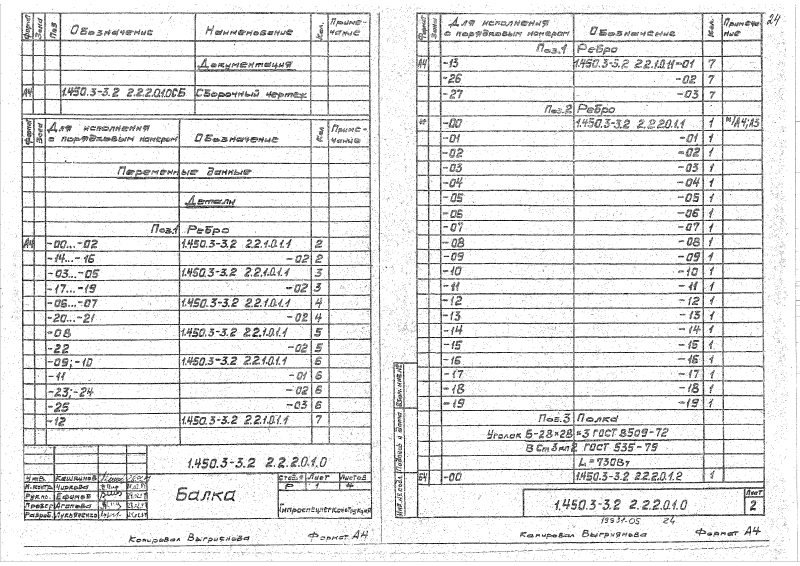 Формат Зона Поз Обозначение Наименование Кол. Приме-чание
Документация
А4 1.450.3-3.2 2.2.2.0.1.0СБ Сборочный чертеж
Формат Зона Для исполнения с порядковым номером Обозначение Кол. Приме-чание
Переменные данные
Детали
Поз.1 Ребро
А4 -00...-02 1.450.3-3.2 2.2.1.0.1.1 2
-14...-16 -02 2
-03...-05 1.450.3-3.2 2.2.1.0.1.1 3
-17...-19 -02 3
-06...-07 1.450.3-3.2 2.2.1.0.1.1 4
-20...-21 -02 4
-08 1.450.3-3.2 2.2.1.0.1.1 5
-22 -02 5
-09;-10 1.450.3-3.2 2.2.1.0.1.1 6
-11 -01 6
-23;-24 -02 6
-25 -03 6
-12 1.450.3-3.2 2.2.1.0.1.1 7
1.450.3-3.2 2.2.2.0.1.0
Балка
Стадия Лист Листов
Р 1 4
Гипроспецлегконструкция
Н.контр. Чиркова
Рук.пс. Ефимов
Провер. Агапова
Разраб. Лукьяненко
Копировал Выгриянова Формат А4
24
Формат Зона Для исполнения с порядковым номером Обозначение Кол. Примеча-ние
Поз.1 Ребро
А4 -13 1.450.3-3.2 2.2.1.0.1.1-01 7
-26 -02 7
-27 -03 7
Поз.2 Ребро
-00 1.450.3-3.2 2.2.2.0.1.1 1 А4;А3
-01 -01 1
-02 -02 1
-03 -03 1
-04 -04 1
-05 -05 1
-06 -06 1
-07 -07 1
-08 -08 1
-09 -09 1
-10 -10 1
-11 -11 1
-12 -12 1
-13 -13 1
-14 -14 1
-15 -15 1
-16 -16 1
-17 -17 1
-18 -18 1
-19 -19 1
Поз.3 Полка
Уголок Б-28×28×3 ГОСТ 8509-72
ВСт3кп2 ГОСТ 535-79
L=730
БЧ -00 1.450.3-3.2 2.2.2.0.1.2 1
Инв.№ подл. Подпись и дата Взам.инв.№
1.450.3-3.2 2.2.2.0.1.0
Лист
2
19931-05 24
Копировал Выгриянова Формат А4